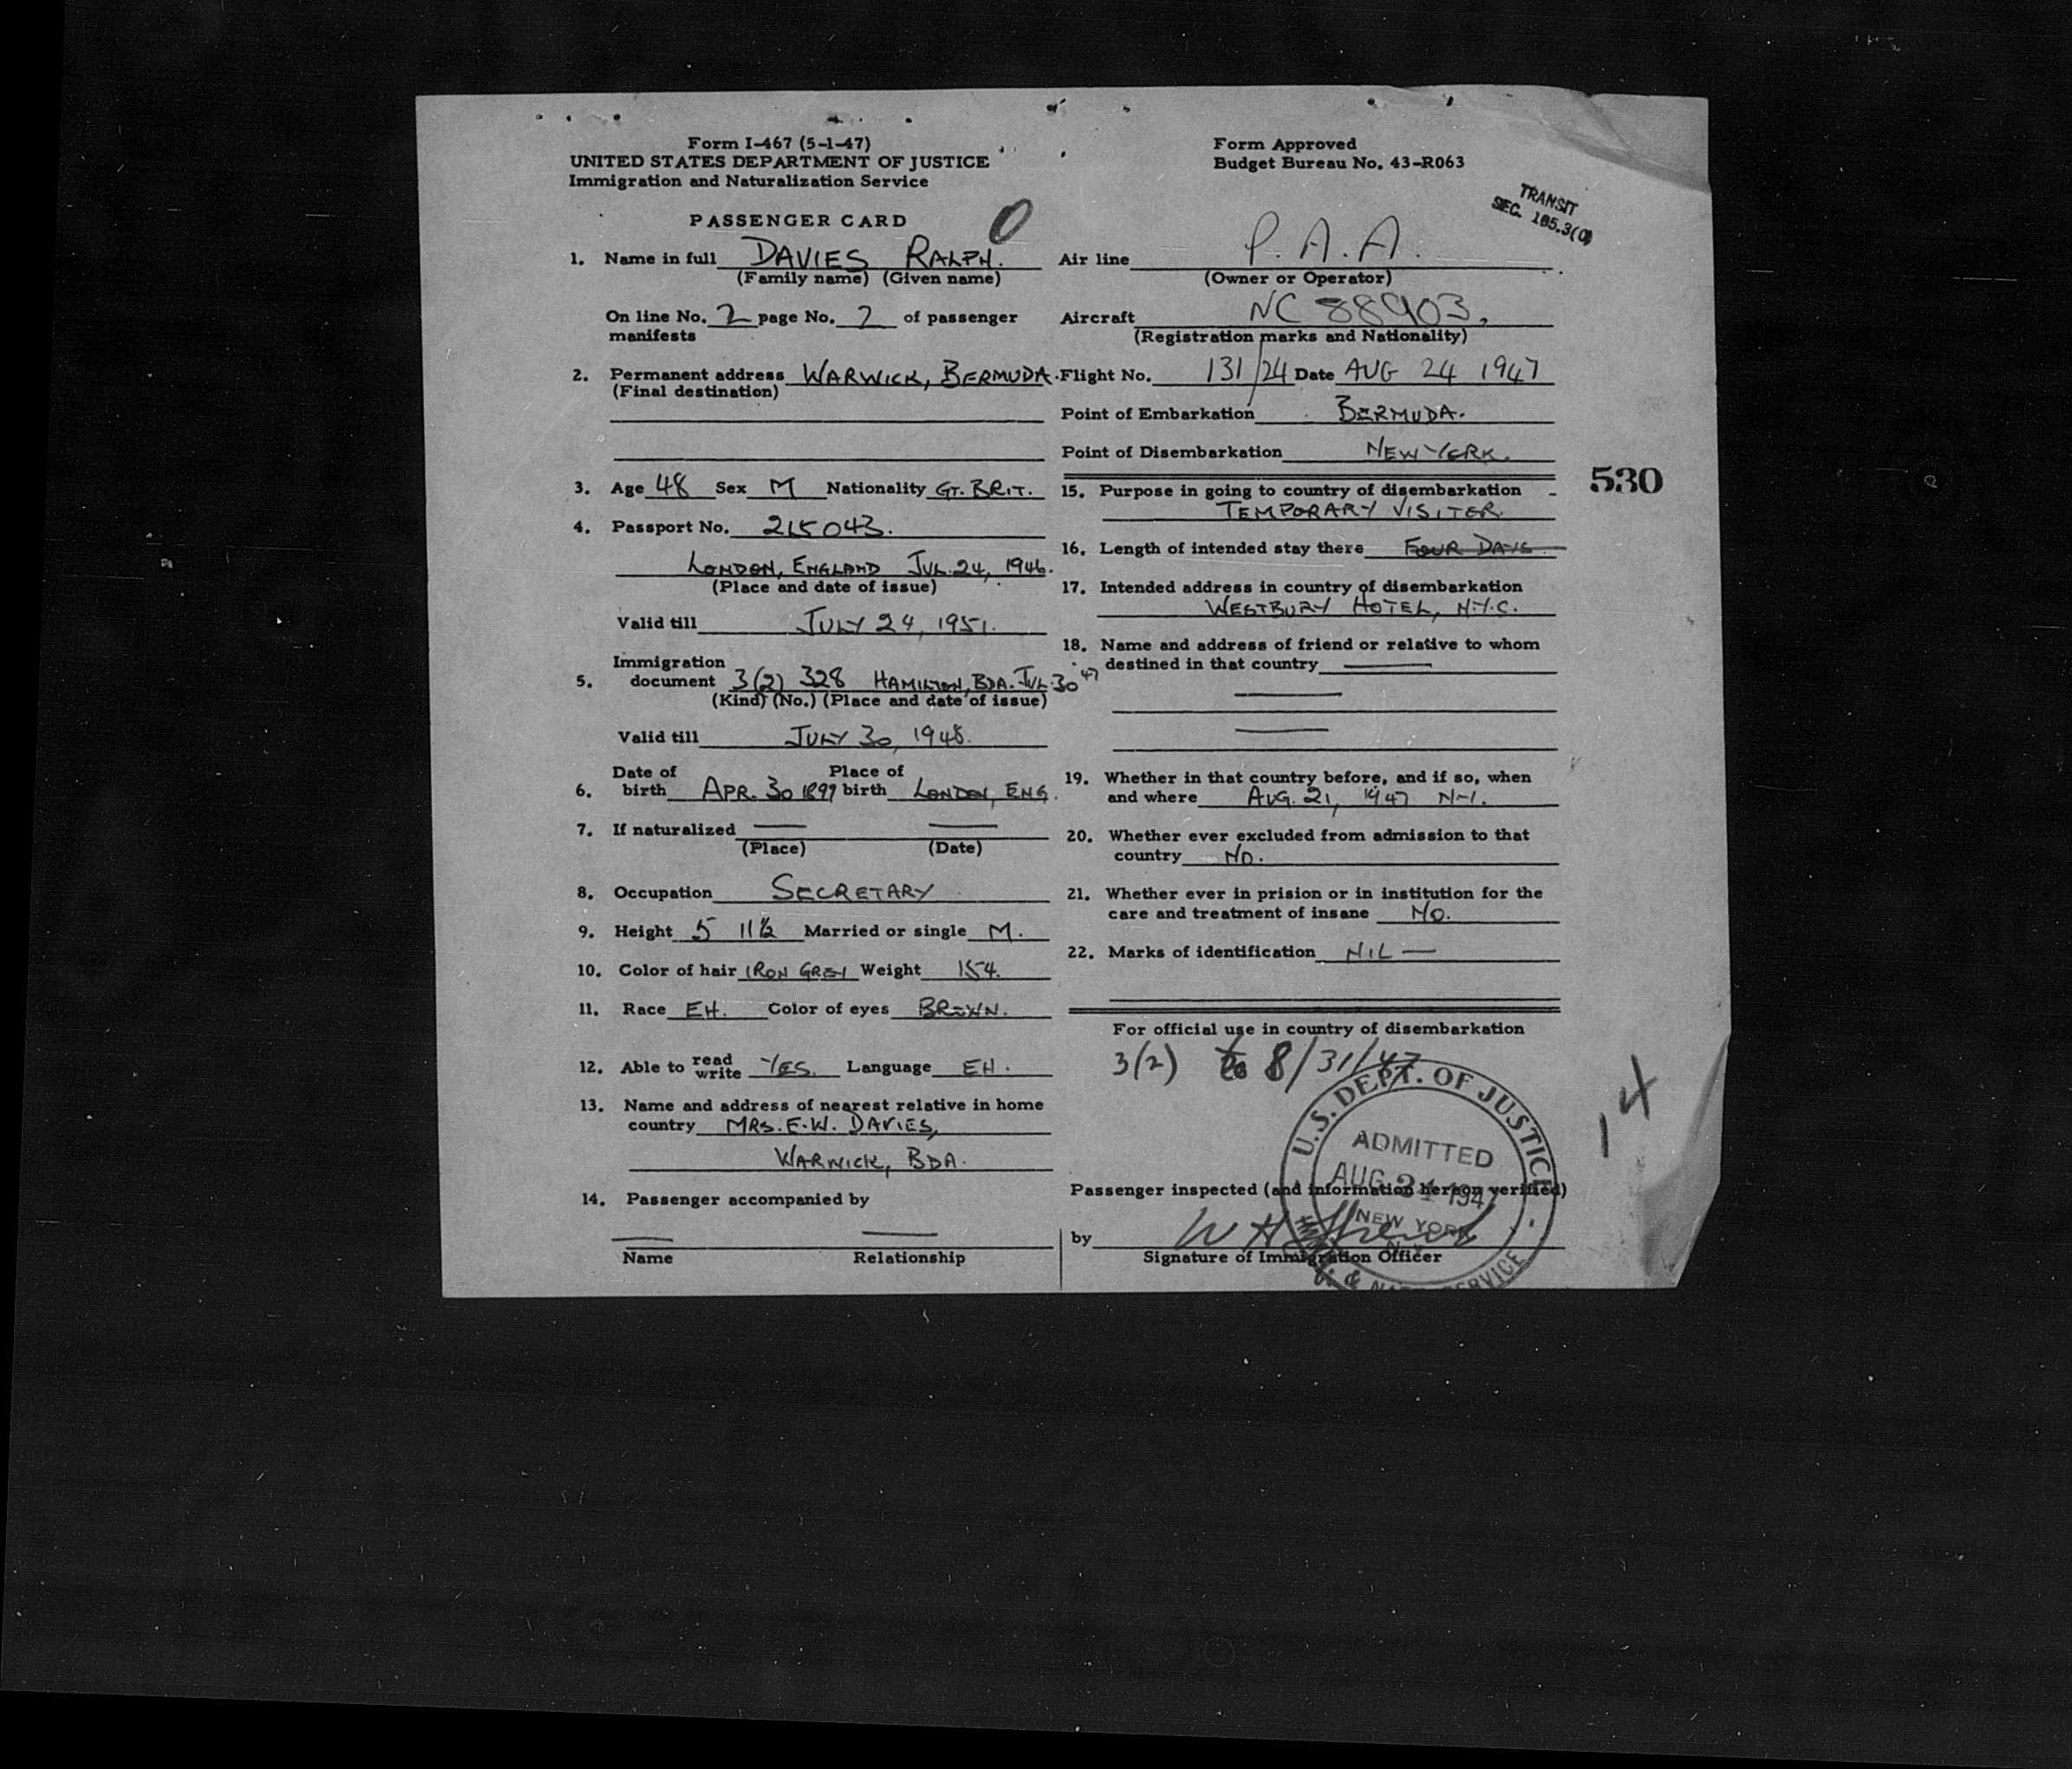 Form I-467 (5-1-47)
UNITED STATES DEPARTMENT OF JUSTICE
Immigration and Naturalization Service
PASSENGER CARD
0
1. Name in full DAVIES RALPH.
(Family name) (Given name)
On line No. 2 page No. 2 of passenger
manifests
2. Permanent address WARWICK, BERMUDA.
(Final destination)
3. Age 48 Sex M Nationality GT. BRIT.
4. Passport No. 215043.
LONDON, ENGLAND JUL. 24, 1946.
(Place and date of issue)
Valid till JULY 24, 1951.
Immigration
5. document 3(2) 328 HAMILTON, BDA. JUL. 30 47
(Kind) (No.) (Place and date of issue)
Valid till JULY 30, 1948.
Date of Place of
6. birth APR. 30 1899 birth LONDON, ENG.
7. If naturalized
(Place) (Date)
8. Occupation SECRETARY
9. Height 5 11½ Married or single M.
10. Color of hair IRON GREY Weight 154.
11. Race EH. Color of eyes BROWN.
12. Able to read write YES. Language EH.
13. Name and address of nearest relative in home
country MRS. E.W. DAVIES,
WARWICK, BDA.
14. Passenger accompanied by
Name Relationship
Form Approved
Budget Bureau No. 43-R063
TRANSIT
SEC. 165.3(C)
Air line P.A.A.
(Owner or Operator)
Aircraft NC 88903.
(Registration marks and Nationality)
Flight No. 131/24 Date AUG 24 1947
Point of Embarkation BERMUDA.
Point of Disembarkation NEW YORK.
530
15. Purpose in going to country of disembarkation
TEMPORARY VISITER.
16. Length of intended stay there FOUR DAYS
17. Intended address in country of disembarkation
WESTBURY HOTEL, N.Y.C.
18. Name and address of friend or relative to whom
destined in that country
19. Whether in that country before, and if so, when
and where AUG. 21, 1947 N.Y.
20. Whether ever excluded from admission to that
country NO.
21. Whether ever in prision or in institution for the
care and treatment of insane NO.
22. Marks of identification NIL
For official use in country of disembarkation
3(2) to 8/31/47
14
U.S. DEPT. OF JUSTICE
ADMITTED
AUG 24 1947
NEW YORK
Passenger inspected (and information hereon verified)
by
Signature of Immigration Officer
& NATZ. SERVICE